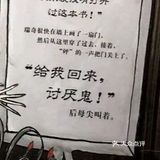 过这本书！”
瑞奇很快在墙上画了一扇门，
然后从这里穿了过去。接着，
“砰”的一声把门关上了。
“给我回来，
讨厌鬼！”
后母尖叫着。
大众点评